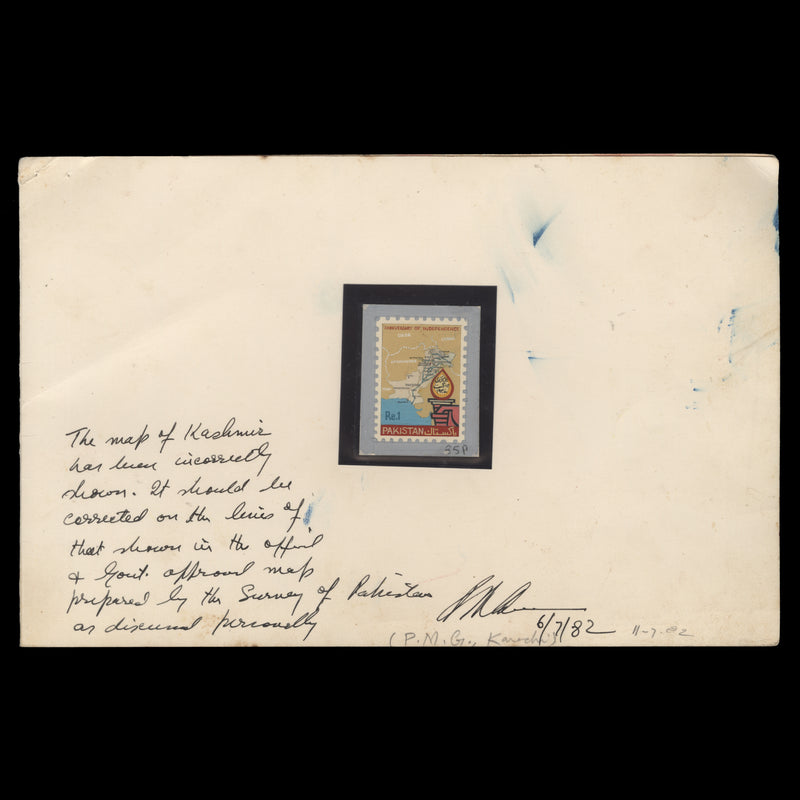 ANNIVERSARY OF INDEPENDENCE
Re.1
PAKISTAN پاکستان
55P
The map of Kashmir
has been incorrectly
shown. It should be
corrected on the lines of
that shown in the
& Govt. approved map
prepared by the Survey of Pakistan
as discussed personally
6/7/82
(P.M.G., Karachi)
11-7-82